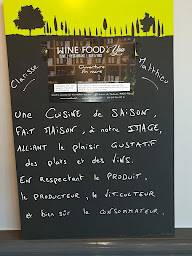 WINE FOOD & You
Ouverture
fin mars
Clarisse
Matthieu
Une CUISINE de SAISON,
FAIT MAISON, à notre IMAGE,
ALLIANT le plaisir GUSTATIF
des plats et des VINS.
EN respectant le PRODUIT,
le PRODUCTEUR, le VITICULTEUR
et bien sûr le CONSOMMATEUR.